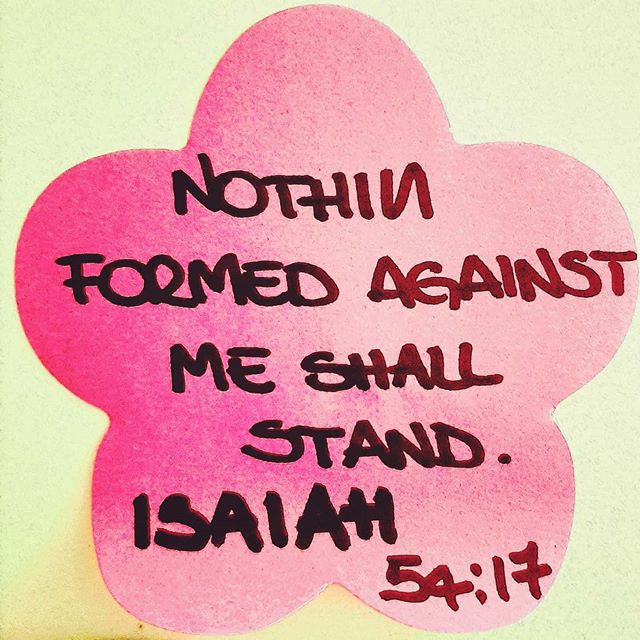 NOTHIN
FORMED AGAINST
ME SHALL
STAND.
ISAIAH
54:17